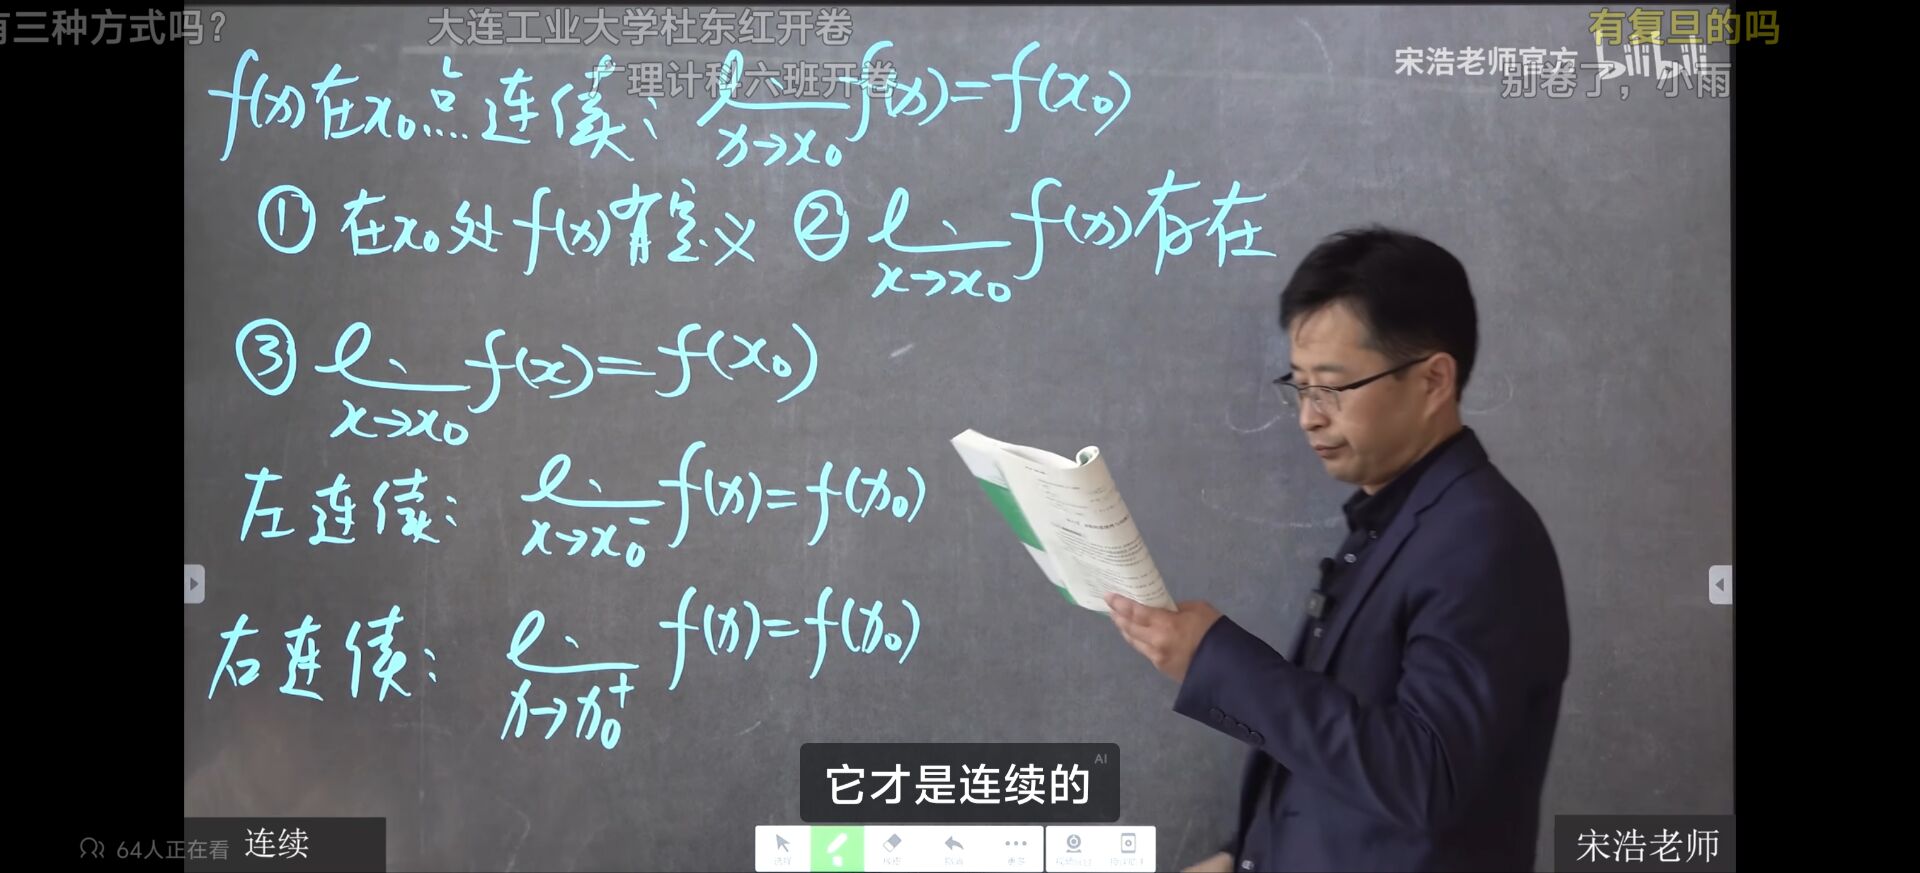 有三种方式吗？
大连工业大学杜东红开卷
有复旦的吗
宋浩老师官方 bilibili
广理计科六班开卷
别卷了，小雨
f(x)在x₀点连续： lim x→x₀ f(x)=f(x₀)
① 在x₀处f(x)有定义 ② lim x→x₀ f(x)存在
③ lim x→x₀ f(x)=f(x₀)
左连续： lim x→x₀⁻ f(x)=f(x₀)
右连续： lim x→x₀⁺ f(x)=f(x₀)
AI
它才是连续的
64人正在看
连续
选择
更多
宋浩老师